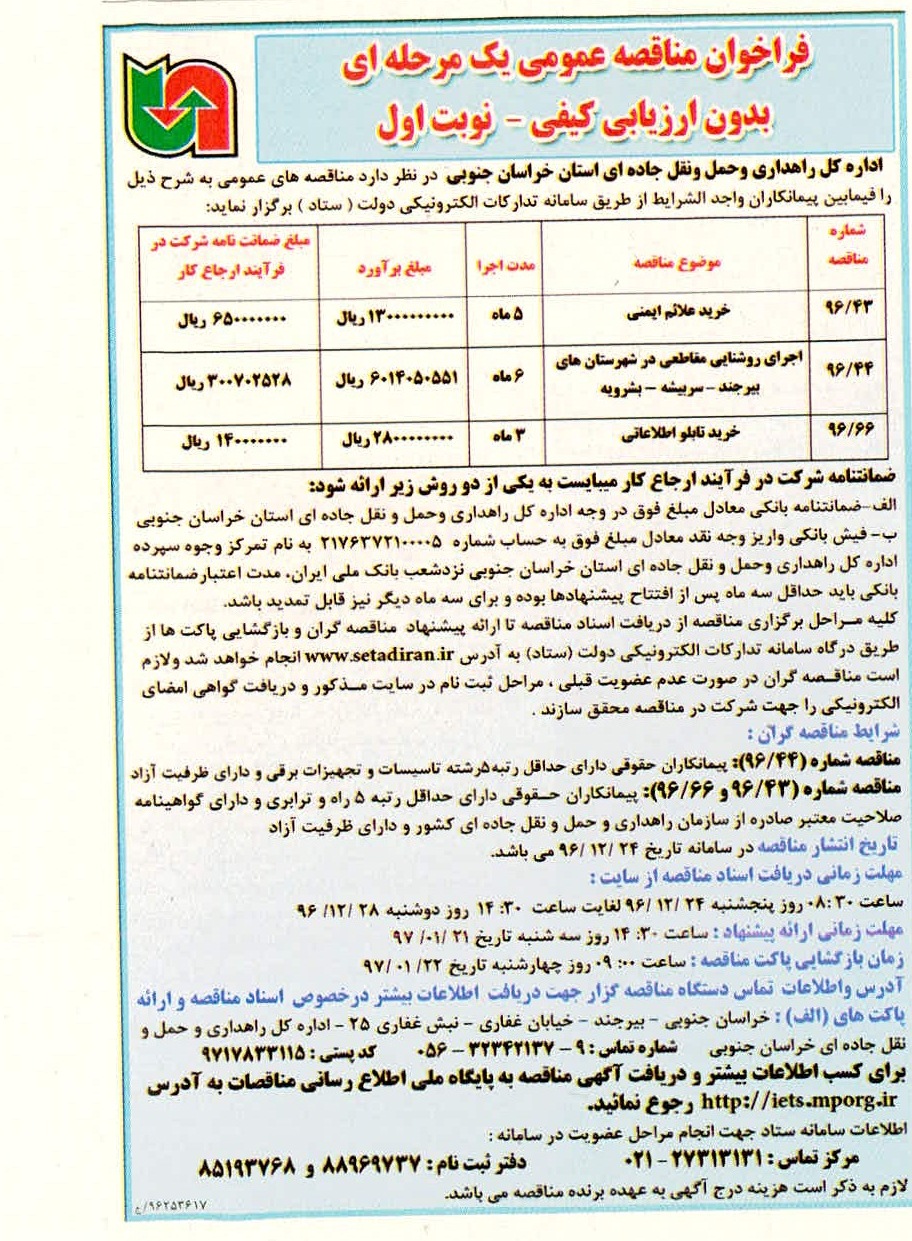 فراخوان مناقصه عمومی یک مرحله ای
بدون ارزیابی کیفی - نوبت اول
اداره کل راهداری وحمل ونقل جاده ای استان خراسان جنوبی در نظر دارد مناقصه های عمومی به شرح ذیل
را فیمابین پیمانکاران واجد الشرایط از طریق سامانه تدارکات الکترونیکی دولت ( ستاد ) برگزار نماید:
شماره مناقصه | موضوع مناقصه | مدت اجرا | مبلغ برآورد | مبلغ ضمانت نامه شرکت در فرآیند ارجاع کار
۹۶/۴۳ | خرید علائم ایمنی | ۵ ماه | ۱۳۰۰۰۰۰۰۰۰۰ ریال | ۶۵۰۰۰۰۰۰۰ ریال
۹۶/۴۴ | اجرای روشنایی مقاطعی در شهرستان های بیرجند – سربیشه – بشرویه | ۶ ماه | ۶۰۱۴۰۵۰۵۵۱ ریال | ۳۰۰۷۰۲۵۲۸ ریال
۹۶/۶۶ | خرید تابلو اطلاعاتی | ۳ ماه | ۲۸۰۰۰۰۰۰۰۰ ریال | ۱۴۰۰۰۰۰۰۰ ریال
ضمانتنامه شرکت در فرآیند ارجاع کار میبایست به یکی از دو روش زیر ارائه شود:
الف-ضمانتنامه بانکی معادل مبلغ فوق در وجه اداره کل راهداری وحمل و نقل جاده ای استان خراسان جنوبی
ب- فیش بانکی واریز وجه نقد معادل مبلغ فوق به حساب شماره ۲۱۷۶۳۷۲۱۰۰۰۰۵ به نام تمرکز وجوه سپرده
اداره کل راهداری وحمل و نقل جاده ای استان خراسان جنوبی نزدشعب بانک ملی ایران، مدت اعتبارضمانتنامه
بانکی باید حداقل سه ماه پس از افتتاح پیشنهادها بوده و برای سه ماه دیگر نیز قابل تمدید باشد.
کلیه مراحل برگزاری مناقصه از دریافت اسناد مناقصه تا ارائه پیشنهاد مناقصه گران و بازگشایی پاکت ها از
طریق درگاه سامانه تدارکات الکترونیکی دولت (ستاد) به آدرس www.setadiran.ir انجام خواهد شد ولازم
است مناقصه گران در صورت عدم عضویت قبلی ، مراحل ثبت نام در سایت مذکور و دریافت گواهی امضای
الکترونیکی را جهت شرکت در مناقصه محقق سازند .
شرایط مناقصه گران :
مناقصه شماره (۹۶/۴۴): پیمانکاران حقوقی دارای حداقل رتبه۵رشته تاسیسات و تجهیزات برقی و دارای ظرفیت آزاد
مناقصه شماره (۹۶/۴۳ و ۹۶/۶۶): پیمانکاران حقوقی دارای حداقل رتبه ۵ راه و ترابری و دارای گواهینامه
صلاحیت معتبر صادره از سازمان راهداری و حمل و نقل جاده ای کشور و دارای ظرفیت آزاد
تاریخ انتشار مناقصه در سامانه تاریخ ۲۴ /۱۲ /۹۶ می باشد.
مهلت زمانی دریافت اسناد مناقصه از سایت :
ساعت ۰۸:۳۰ روز پنجشنبه ۲۴ /۱۲ /۹۶ لغایت ساعت ۱۴:۳۰ روز دوشنبه ۲۸ /۱۲ /۹۶
مهلت زمانی ارائه پیشنهاد : ساعت ۱۴:۳۰ روز سه شنبه تاریخ ۲۱ /۰۱ /۹۷
زمان بازگشایی پاکت مناقصه : ساعت ۰۹:۰۰ روز چهارشنبه تاریخ ۲۲/ ۰۱ /۹۷
آدرس واطلاعات تماس دستگاه مناقصه گزار جهت دریافت اطلاعات بیشتر درخصوص اسناد مناقصه و ارائه
پاکت های (الف) : خراسان جنوبی - بیرجند - خیابان غفاری - نبش غفاری ۲۵ - اداره کل راهداری و حمل و
نقل جاده ای خراسان جنوبی شماره تماس : ۹ – ۳۲۳۴۲۱۳۷ – ۰۵۶ کد پستی : ۹۷۱۷۸۳۳۱۱۵
برای کسب اطلاعات بیشتر و دریافت آگهی مناقصه به پایگاه ملی اطلاع رسانی مناقصات به آدرس
http://iets.mporg.ir رجوع نمائید.
اطلاعات سامانه ستاد جهت انجام مراحل عضویت در سامانه :
مرکز تماس : ۲۷۳۱۳۱۳۱ – ۰۲۱ دفتر ثبت نام : ۸۸۹۶۹۷۳۷ و ۸۵۱۹۳۷۶۸
لازم به ذکر است هزینه درج آگهی به عهده برنده مناقصه می باشد.
۹۶۲۵۳۶۱۷/ج